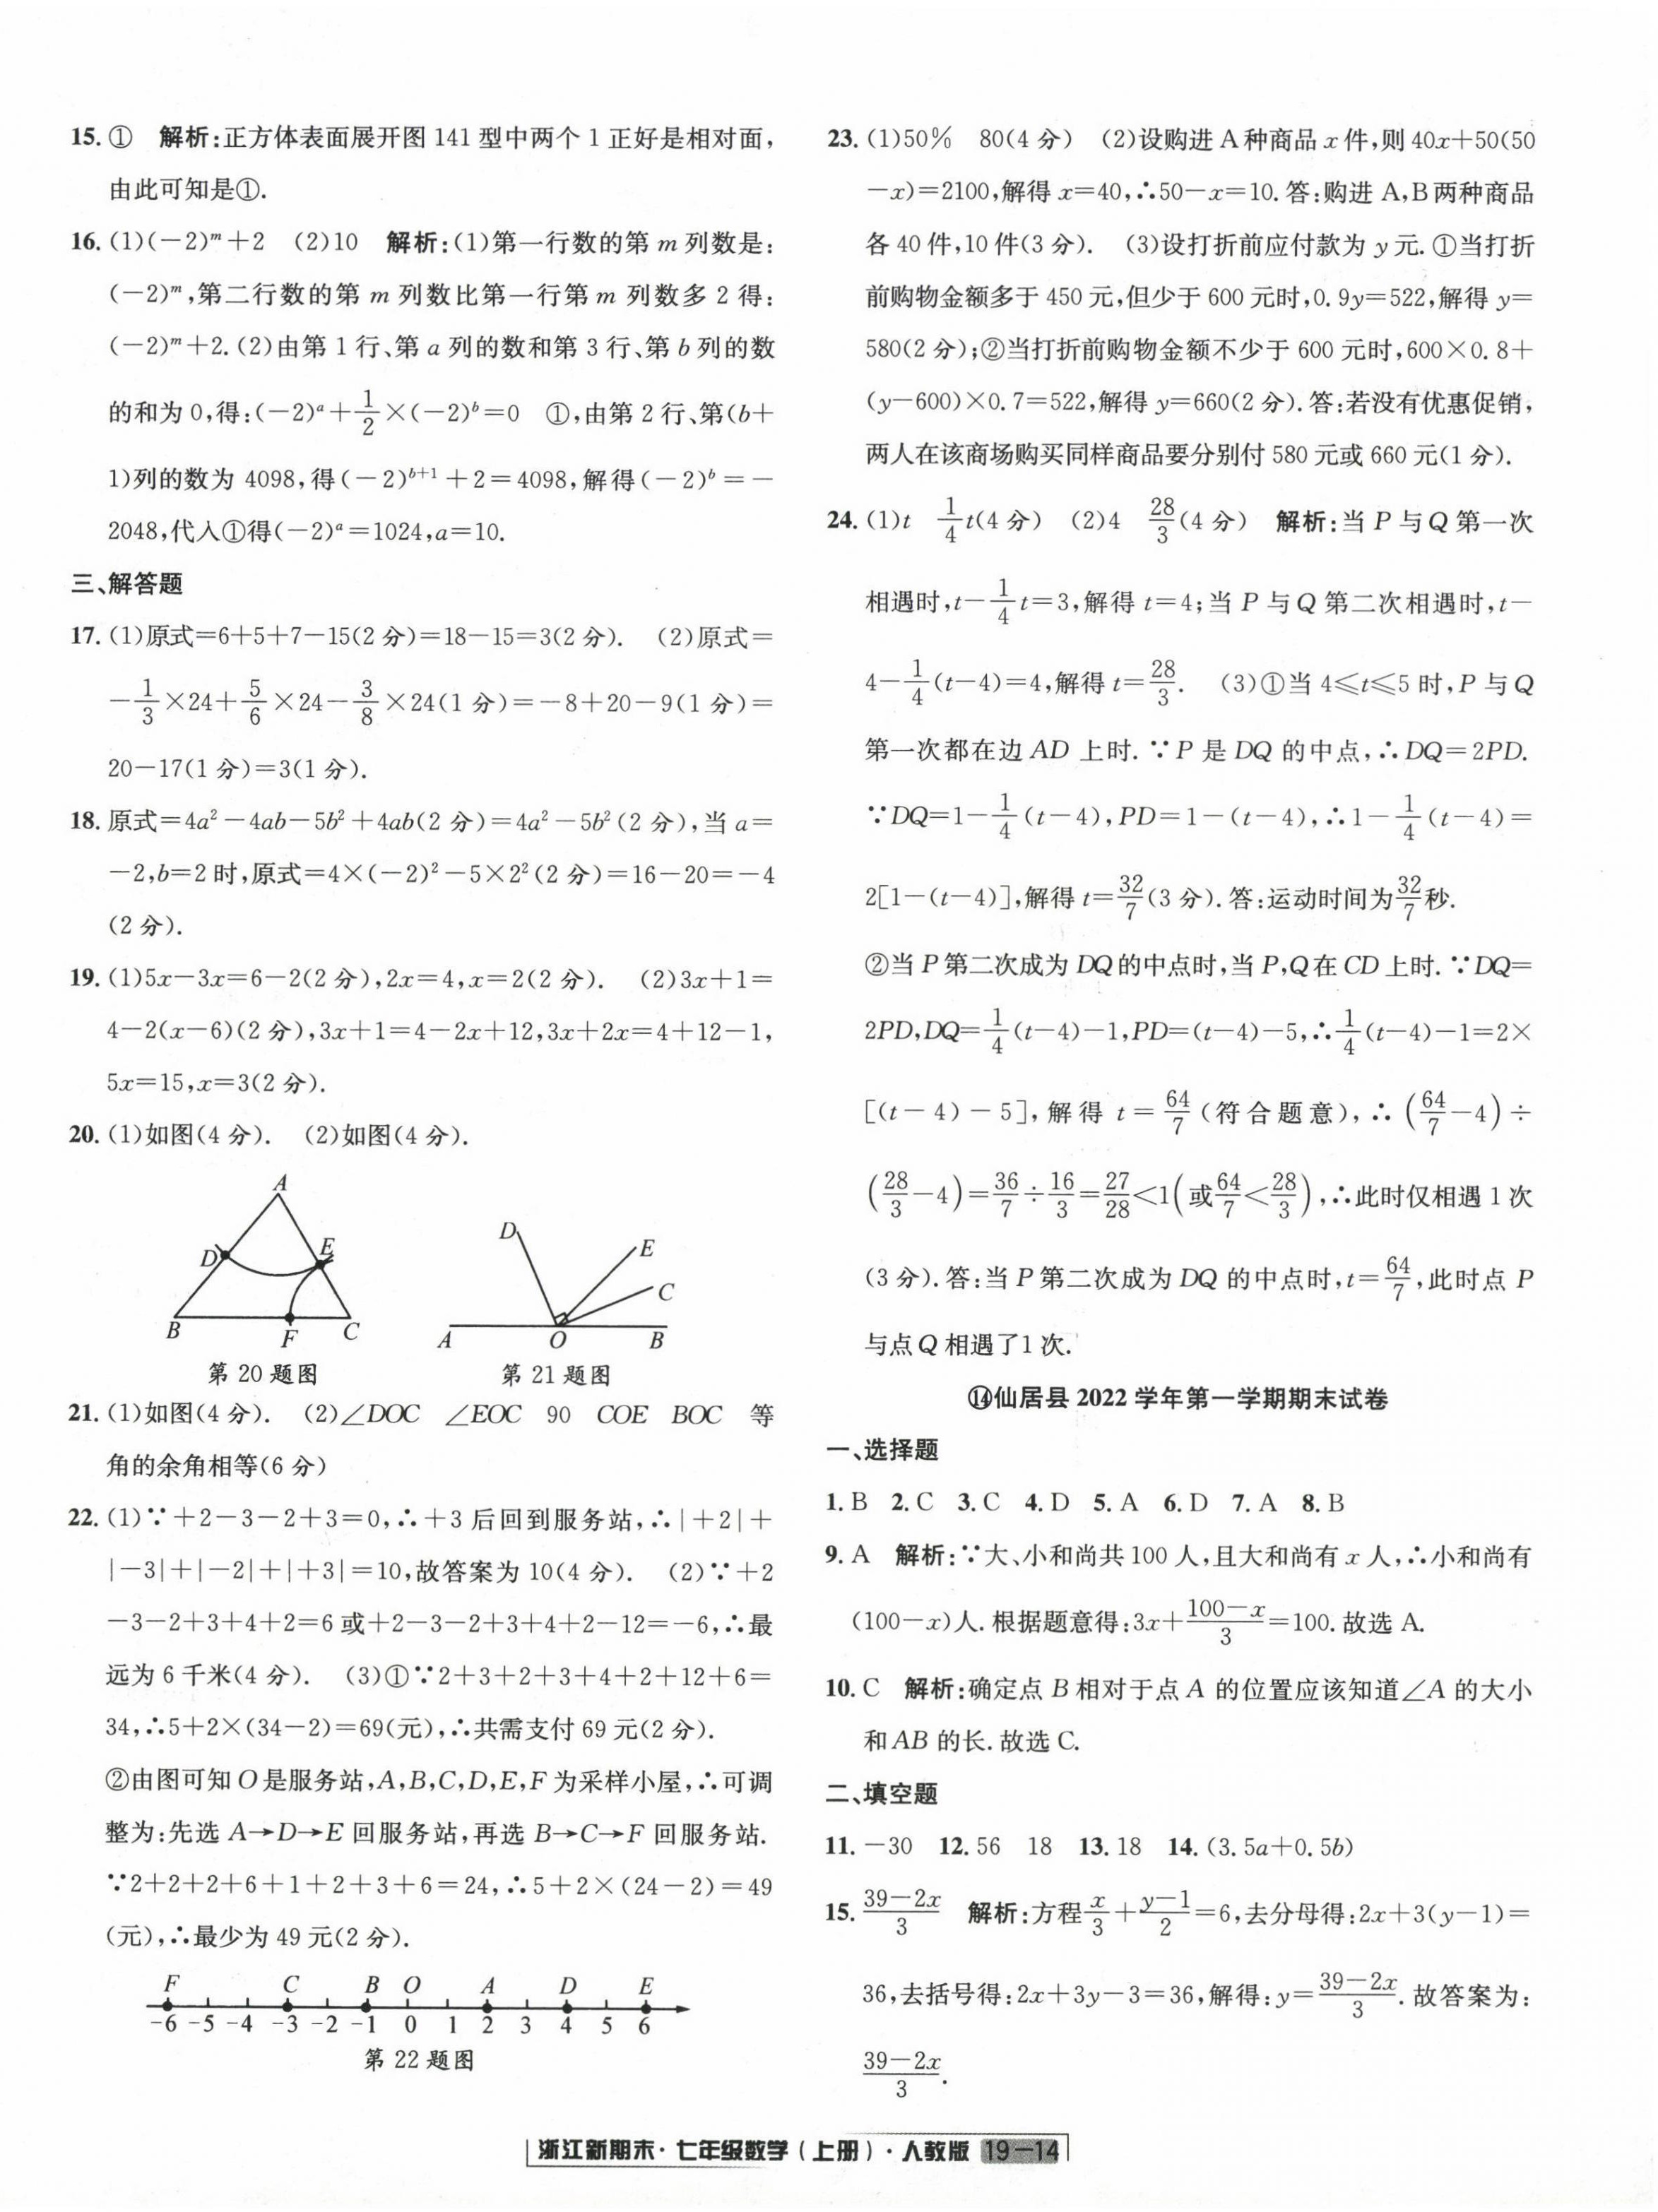 15. ① 解析:正方体表面展开图 141 型中两个 1 正好是相对面,
由此可知是①.
16. (1)(-2)ᵐ+2 (2)10 解析:(1)第一行数的第 m 列数是:
(-2)ᵐ,第二行数的第 m 列数比第一行第 m 列数多 2 得:
(-2)ᵐ+2. (2)由第 1 行、第 a 列的数和第 3 行、第 b 列的数
的和为 0,得:(-2)ᵃ+1/2×(-2)ᵇ=0 ①,由第 2 行、第(b+
1)列的数为 4098,得(-2)ᵇ⁺¹+2=4098,解得(-2)ᵇ=-
2048,代入①得(-2)ᵃ=1024,a=10.
三、解答题
17. (1)原式=6+5+7-15(2 分)=18-15=3(2 分). (2)原式=
-1/3×24+5/6×24-3/8×24(1 分)=-8+20-9(1 分)=
20-17(1 分)=3(1 分).
18. 原式=4a²-4ab-5b²+4ab(2 分)=4a²-5b²(2 分),当 a=
-2,b=2 时,原式=4×(-2)²-5×2²(2 分)=16-20=-4
(2 分).
19. (1)5x-3x=6-2(2 分),2x=4,x=2(2 分). (2)3x+1=
4-2(x-6)(2 分),3x+1=4-2x+12,3x+2x=4+12-1,
5x=15,x=3(2 分).
20. (1)如图(4 分). (2)如图(4 分).
A
D E
B F C
第 20 题图
D E
C
A O B
第 21 题图
21. (1)如图(4 分). (2)∠DOC ∠EOC 90 COE BOC 等
角的余角相等(6 分)
22. (1)∵+2-3-2+3=0,∴+3 后回到服务站,∴|+2|+
|-3|+|-2|+|+3|=10,故答案为 10(4 分). (2)∵+2
-3-2+3+4+2=6 或+2-3-2+3+4+2-12=-6,∴最
远为 6 千米(4 分). (3)①∵2+3+2+3+4+2+12+6=
34,∴5+2×(34-2)=69(元),∴共需支付 69 元(2 分).
②由图可知 O 是服务站,A,B,C,D,E,F 为采样小屋,∴可调
整为:先选 A→D→E 回服务站,再选 B→C→F 回服务站.
∵2+2+2+6+1+2+3+6=24,∴5+2×(24-2)=49
(元),∴最少为 49 元(2 分).
F C B O A D E
-6 -5 -4 -3 -2 -1 0 1 2 3 4 5 6
第 22 题图
23. (1)50% 80(4 分) (2)设购进 A 种商品 x 件,则 40x+50(50
-x)=2100,解得 x=40,∴50-x=10. 答:购进 A,B 两种商品
各 40 件,10 件(3 分). (3)设打折前应付款为 y 元. ①当打折
前购物金额多于 450 元,但少于 600 元时,0.9y=522,解得 y=
580(2 分);②当打折前购物金额不少于 600 元时,600×0.8+
(y-600)×0.7=522,解得 y=660(2 分). 答:若没有优惠促销,
两人在该商场购买同样商品要分别付 580 元或 660 元(1 分).
24. (1)t 1/4t(4 分) (2)4 28/3(4 分) 解析:当 P 与 Q 第一次
相遇时,t-1/4t=3,解得 t=4;当 P 与 Q 第二次相遇时,t-
4-1/4(t-4)=4,解得 t=28/3. (3)①当 4⩽t⩽5 时,P 与 Q
第一次都在边 AD 上时. ∵P 是 DQ 的中点,∴DQ=2PD.
∵DQ=1-1/4(t-4),PD=1-(t-4),∴1-1/4(t-4)=
2[1-(t-4)],解得 t=32/7(3 分). 答:运动时间为32/7秒.
②当 P 第二次成为 DQ 的中点时,当 P,Q 在 CD 上时. ∵DQ=
2PD,DQ=1/4(t-4)-1,PD=(t-4)-5,∴1/4(t-4)-1=2×
[(t-4)-5],解得 t=64/7(符合题意),∴(64/7-4)÷
(28/3-4)=36/7÷16/3=27/28<1(或64/7<28/3),∴此时仅相遇 1 次
(3 分). 答:当 P 第二次成为 DQ 的中点时,t=64/7,此时点 P
与点 Q 相遇了 1 次.
⑭仙居县 2022 学年第一学期期末试卷
一、选择题
1. B 2. C 3. C 4. D 5. A 6. D 7. A 8. B
9. A 解析:∵大、小和尚共 100 人,且大和尚有 x 人,∴小和尚有
(100-x)人. 根据题意得:3x+(100-x)/3=100. 故选 A.
10. C 解析:确定点 B 相对于点 A 的位置应该知道∠A 的大小
和 AB 的长. 故选 C.
二、填空题
11. -30 12. 56 18 13. 18 14. (3.5a+0.5b)
15. (39-2x)/3 解析:方程x/3+(y-1)/2=6,去分母得:2x+3(y-1)=
36,去括号得:2x+3y-3=36,解得:y=(39-2x)/3. 故答案为:
(39-2x)/3.
浙江新期末·七年级数学(上册)·人教版 19-14